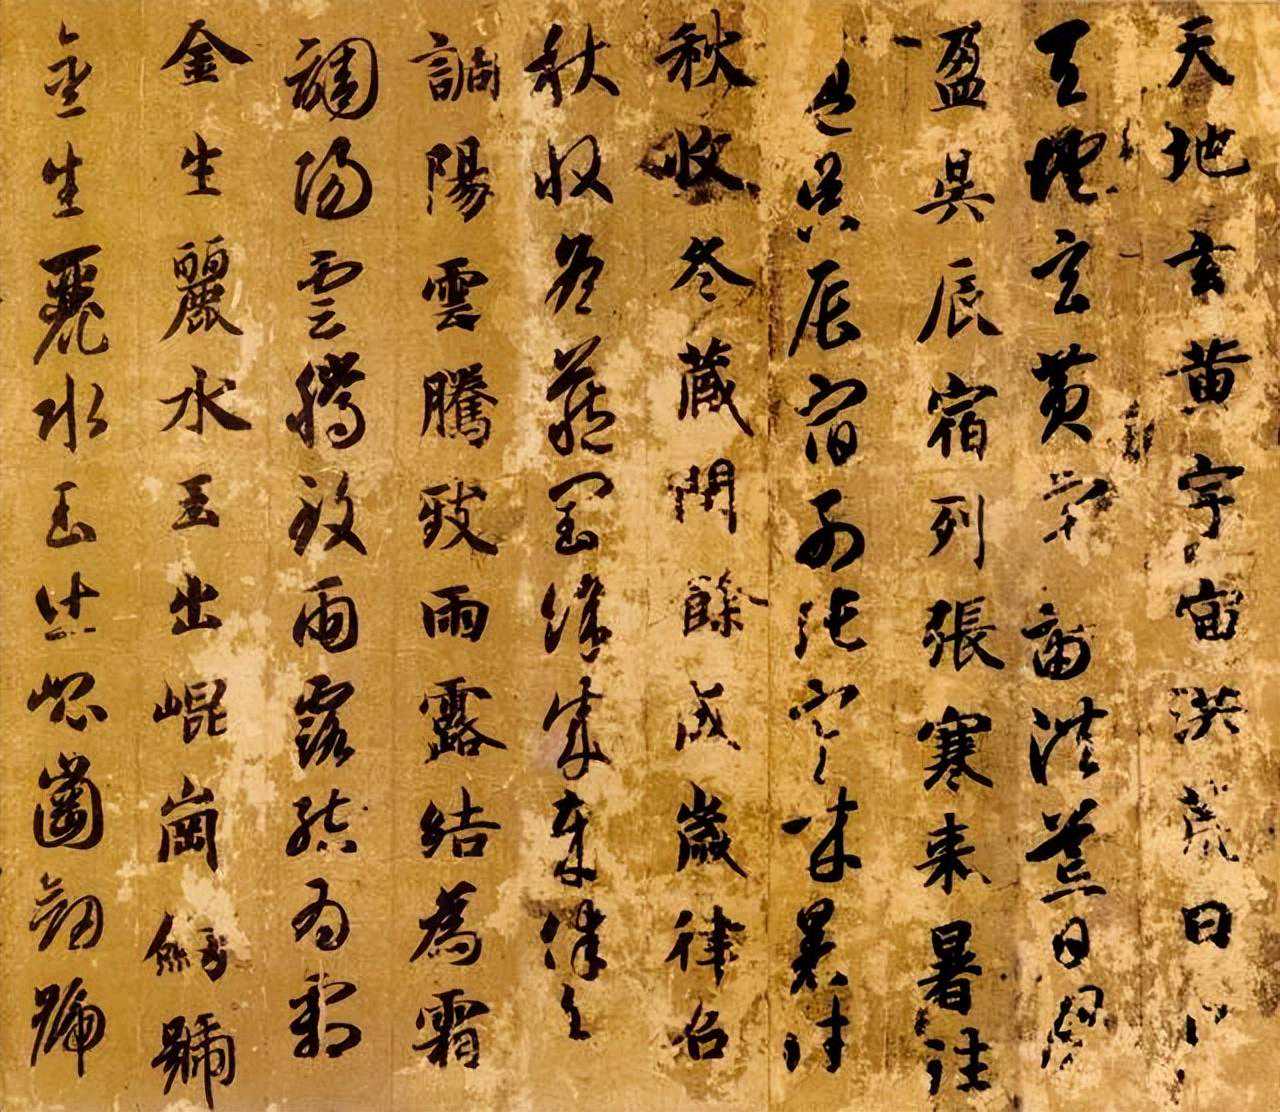 天地玄黄宇宙洪荒日
天地玄黄宇宙洪荒日月
盈昃辰宿列張寒来暑往
盈昃辰宿列張寒来暑往
秋收冬蔵閏餘成歲律召
秋收冬蔵閏餘成歲律召
調陽雲騰致雨露結為霜
調陽雲騰致雨露結為霜
金生麗水玉出崐崗劔號
金生麗水玉出崐崗劔號